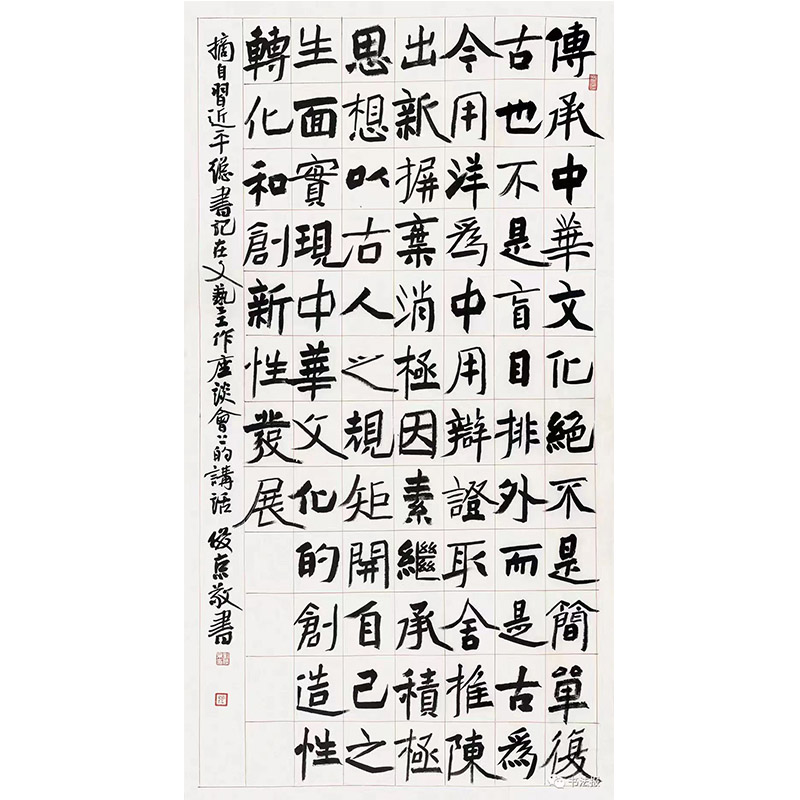 傳承中華文化絕不是簡單復
古也不是盲目排外而是古為
今用洋為中用辯證取舍推陳
出新摒棄消極因素繼承積極
思想以古人之規矩開自己之
生面實現中華文化的創造性
轉化和創新性發展
摘自習近平總書記在文藝工作座談會上的講話 俊京敬書
书法报